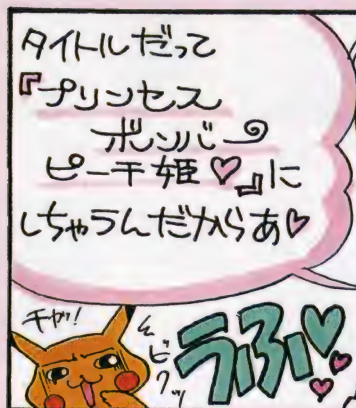 タイトルだって
『プリンセス
ボンバー
ピーチ姫♡』に
しちゃうんだからあ♡
うふ♡
チャッ!
ビクッ